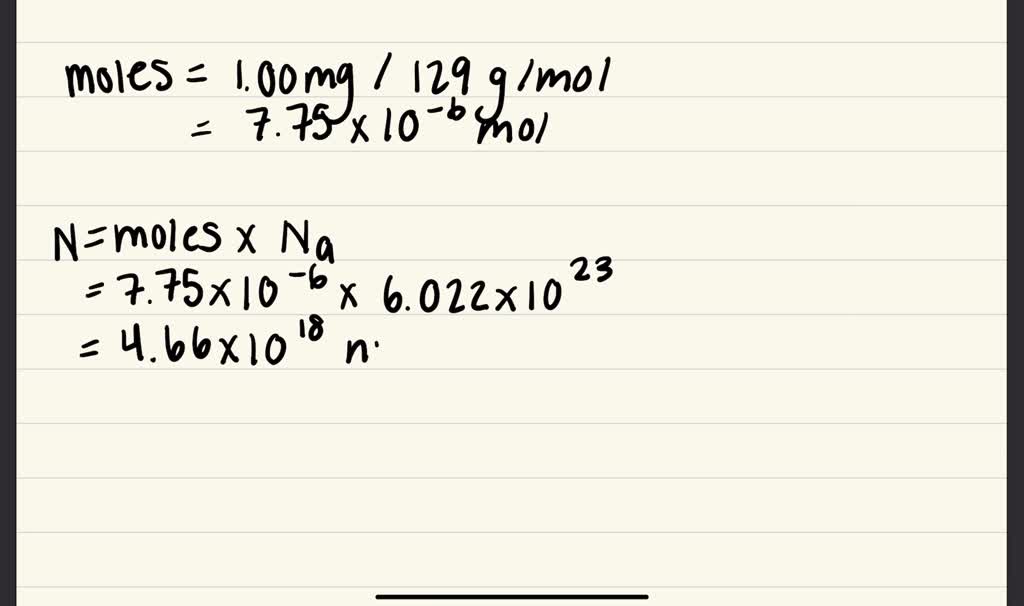 moles = 1.00mg / 129 g/mol
= 7.75 x 10⁻⁶ mol
N = moles x Na
= 7.75 x 10⁻⁶ x 6.022 x 10²³
= 4.66 x 10¹⁸ n.